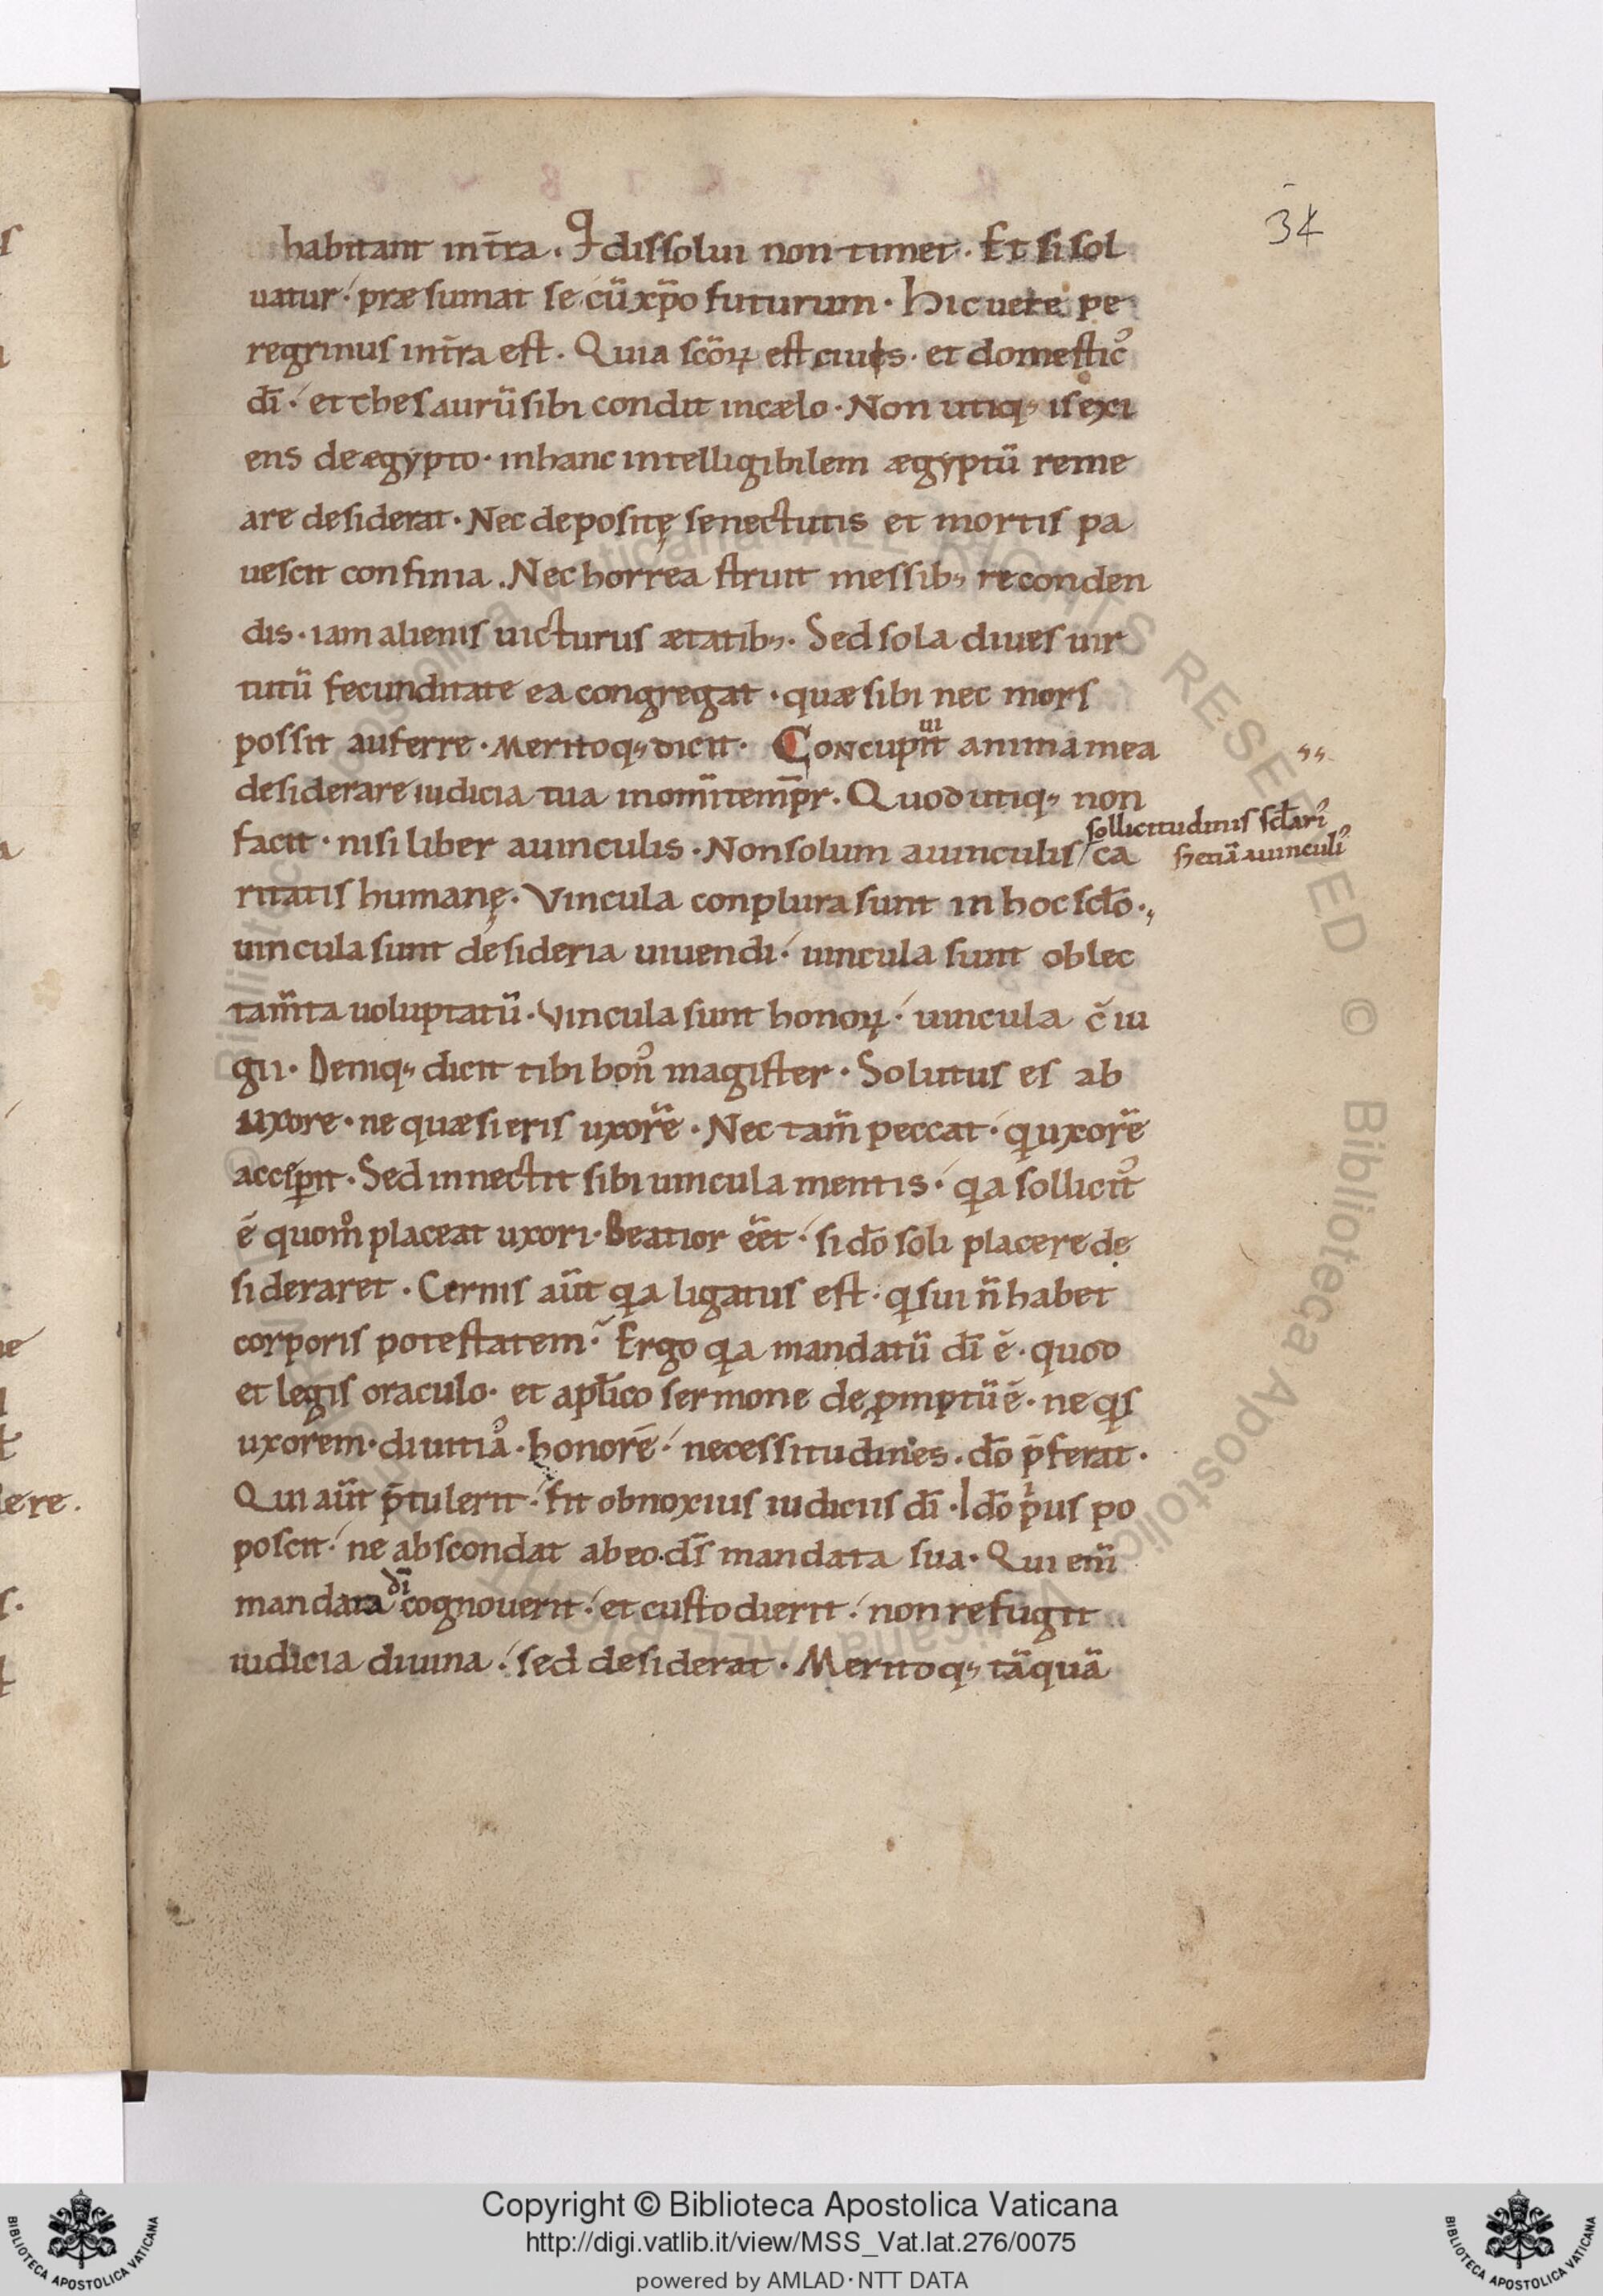 34
habitant int̄ra. Qͥ dissolui non timet. Et si sol
uatur. præsumat se cū xp̄o futurum. Hic uere pe
regrinus int̄ra est. Quia sc̄oꝝ est ciuis. et domesticꝰ
dī. et thesaurū sibi condit in cælo. Non utiq; is exi
ens de ægypto. in hanc intelligibilem ægyptū reme
are desiderat. Nec depositę senectutis et mortis pa
uescit confinia. Nec horrea struit messib; reconden
dis. iam alienis uicturus ætatib;. Sed sola diues uir
tutū fecunditate ea congregat. quæ sibi nec mors
possit auferre. Meritoq; dicit. Concupiit anima mea
desiderare iudicia tua in om̄i temp̄r. Quod utiq; non
facit. nisi liber a uinculis. Non solum a uinculis / ca
sollicitudinis sc̄lariꝰ
s; etiā a uinculiꝰ
ritatis humanę. Vincula conplura sunt in hoc sc̄lo.
uincula sunt desideria uiuendi. uincula sunt oblec
tam̄ta uoluptatū. Vincula sunt honoꝝ. uincula c̄iu
gii. Deniq; dicit tibi bonꝰ magister. Solutus es ab
uxore. ne quæsieris uxorē. Nec tam̄ peccat. qͥ uxorē
accipit. Sed innectit sibi uincula mentis. qa sollicitꝰ
ē quom̊ placeat uxori. Beatior eēt. si dō soli placere de
sideraret. Cernis aūt qa ligatus est. qͥ sui n̄ habet
corporis potestatem. Ergo qa mandatū dī ē. quod
et legis oraculo. et aptl̄ico sermone depromptū ē. ne qͥs
uxorem. diuitiaꝰ. honorē. necessitudines. dō p̄ferat.
Qui aūt p̄tulerit. fit obnoxius iudiciis dī. Idō pͥus po
poscit. ne abscondat ab eo. dī̄s mandata sua. Qui eni̅
mandata dī cognouerit. et custodierit. non refugit
iudicia diuina. sed desiderat. Meritoq; tāquā
Copyright © Biblioteca Apostolica Vaticana
http://digi.vatlib.it/view/MSS_Vat.lat.276/0075
powered by AMLAD·NTT DATA